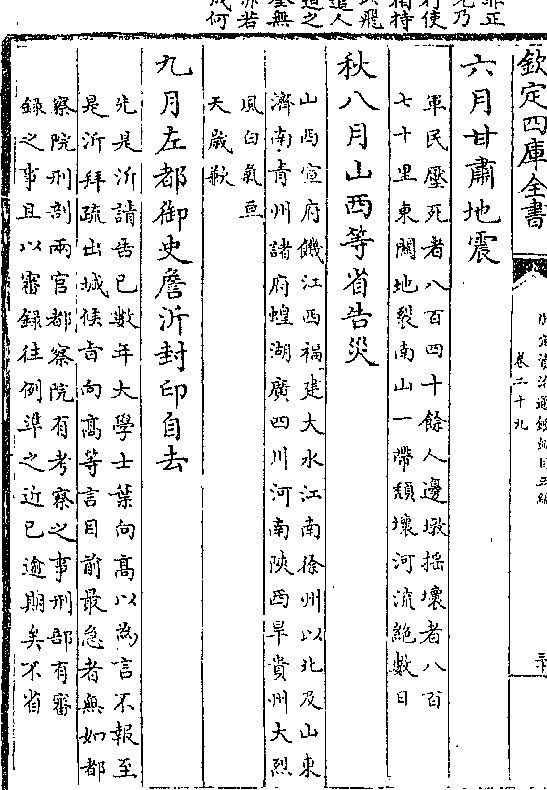 欽定四庫全書
御定資治通鑑綱目三編
卷二十九
六月甘肅地震
軍民壓死者八百四十餘人邊墩搖壞者八百
七十里東關地裂南山一帶頽壞河流絶數日
秋八月山西等省告災
山西宣府饑江西福建大水江南徐州以北及山東
濟南青州諸府蝗湖廣四川河南陜西旱貴州大烈
風白氣亘
天歲歉
九月左都御史詹沂封印自去
先是沂請告已數年大學士葉向髙以為言不報至
是沂拜疏出城候旨向髙等言目前最急者無如都
察院刑部兩官都察院有考察之事刑部有審
録之事且以審録往例準之近已逾期矣不省